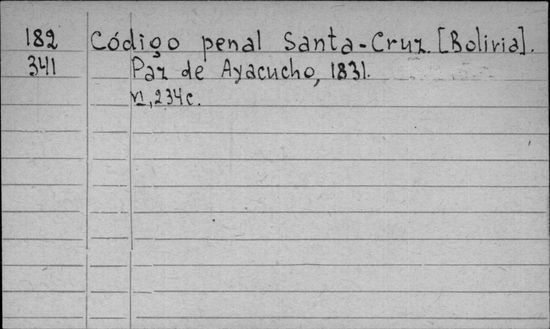 182 Código penal Santa-Cruz. [Bolivia].
341 Paz de Ayacucho, 1831.
VI, 234 c.